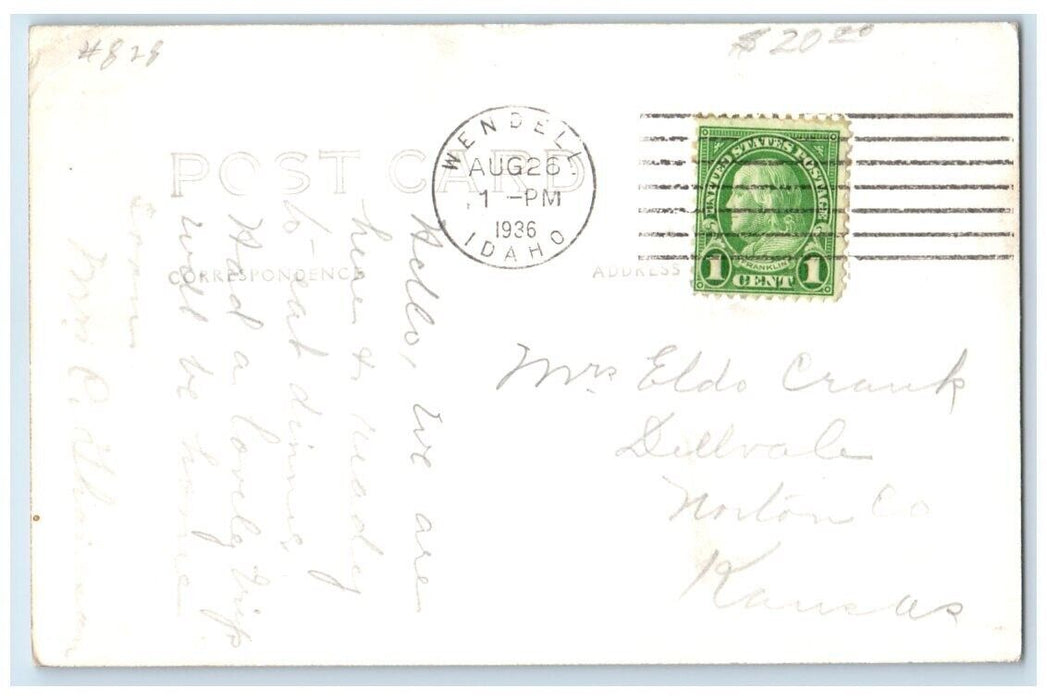 #828
$20.00
POST CARD
WENDELL
AUG 26
1 -PM
1936
IDAHO
UNITED STATES POSTAGE
FRANKLIN
1 CENT 1
CORRESPONDENCE
ADDRESS
Hello, we are
here & ready
to eat dinner,
Had a lovely trip
will be home
soon
Mrs Eldo Crank
Dellvale
Norton Co
Kansas